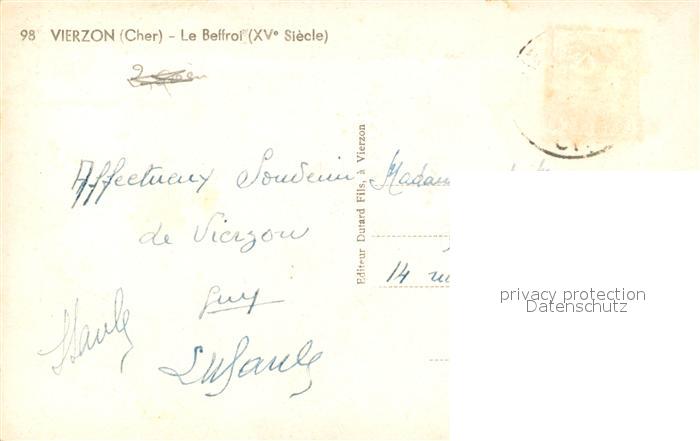 98 VIERZON (Cher) - Le Beffroi (XVe Siècle)
Affectueux Souvenir
de Vierzon
Guy
Editeur Dutard Fils, à Vierzon
Madam
14 ru
privacy protection
Datenschutz